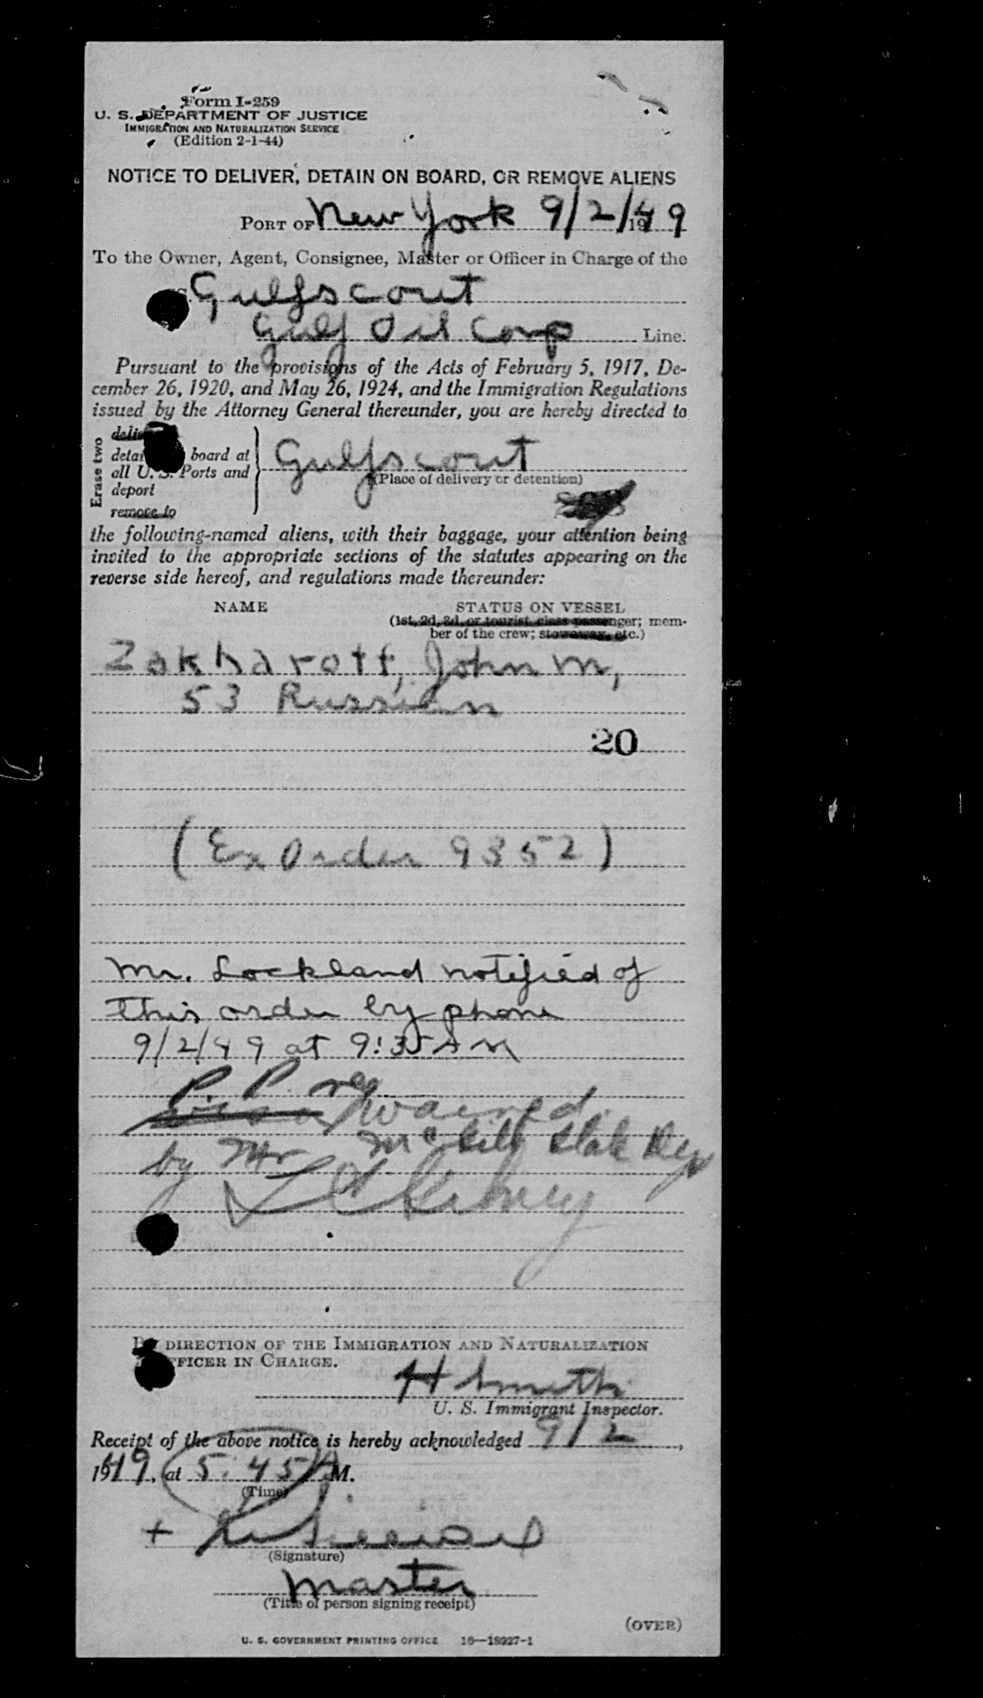 Form I-259
U. S. DEPARTMENT OF JUSTICE
IMMIGRATION AND NATURALIZATION SERVICE
(Edition 2-1-44)
NOTICE TO DELIVER, DETAIN ON BOARD, OR REMOVE ALIENS
PORT OF New York 9/2/1949
To the Owner, Agent, Consignee, Master or Officer in Charge of the
Gulfscout
Gulf Oil Corp Line.
Pursuant to the provisions of the Acts of February 5, 1917, De-
cember 26, 1920, and May 26, 1924, and the Immigration Regulations
issued by the Attorney General thereunder, you are hereby directed to
Erase two
board at
all U. S. Ports and
deport
remove to
Gulfscout
(Place of delivery or detention)
the following-named aliens, with their baggage, your attention being
invited to the appropriate sections of the statutes appearing on the
reverse side hereof, and regulations made thereunder:
NAME STATUS ON VESSEL
(1st, 2d, 3d, or tourist class passenger; mem-
ber of the crew; stowaway, etc.)
Zakharoff, John M,
53 Russian
20
(Ex Order 9352)
Mr. Lockland notified of
this order by phone
9/2/49 at 9:35 AM
P. P. req
waived
by Mr McGill State Dep
H Smith
BY DIRECTION OF THE IMMIGRATION AND NATURALIZATION
OFFICER IN CHARGE.
U. S. Immigrant Inspector.
Receipt of the above notice is hereby acknowledged 9/2,
1949, at 5:45 M.
(Time)
(Signature)
Master
(Title of person signing receipt)
(OVER)
U. S. GOVERNMENT PRINTING OFFICE 16—18927-1